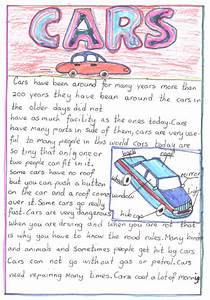 CARS
Cars have been around for many years more than
200 years they have been around the cars in
the older days did not
have as much facility as the ones today. Cars
have many parts in side of them, cars are very use-
ful to many people in this world cars today are
so tiny that only one or
two people can fit in it.
Some cars have no roof
but you can push a button
on the car and a roof comes
over it. Some cars go really
fast. Cars are very dangerous
when you are driving and when you are not that
is why you to know the road rules. Many humans
and animals and sometimes people get hit by cars
Cars can not go without gas or petrol. Cars
need repairing many times. Cars cost a lot of money
mirror
roof
window
hub cap